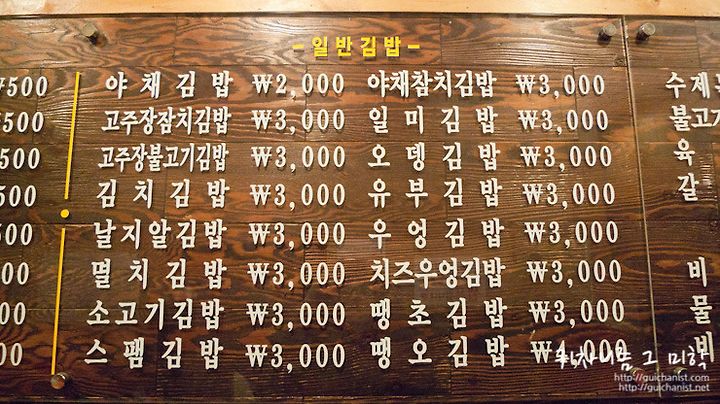 -일반김밥-
₩500 야채김밥 ₩2,000 야채참치김밥 ₩3,000 수제
500 고주장참치김밥 ₩3,000 일미김밥 ₩3,000 불고기
500 고주장불고기김밥 ₩3,000 오뎅김밥 ₩3,000 육
500 김치김밥 ₩3,000 유부김밥 ₩3,000 갈
500 날지알김밥 ₩3,000 우엉김밥 ₩3,000
00 멸치김밥 ₩3,000 치즈우엉김밥 ₩3,000 비
00 소고기김밥 ₩3,000 땡초김밥 ₩3,000 물
00 스팸김밥 ₩3,000 땡오김밥 ₩4,000 비
그 미학
http://guichanist.com
http://guichanist.net